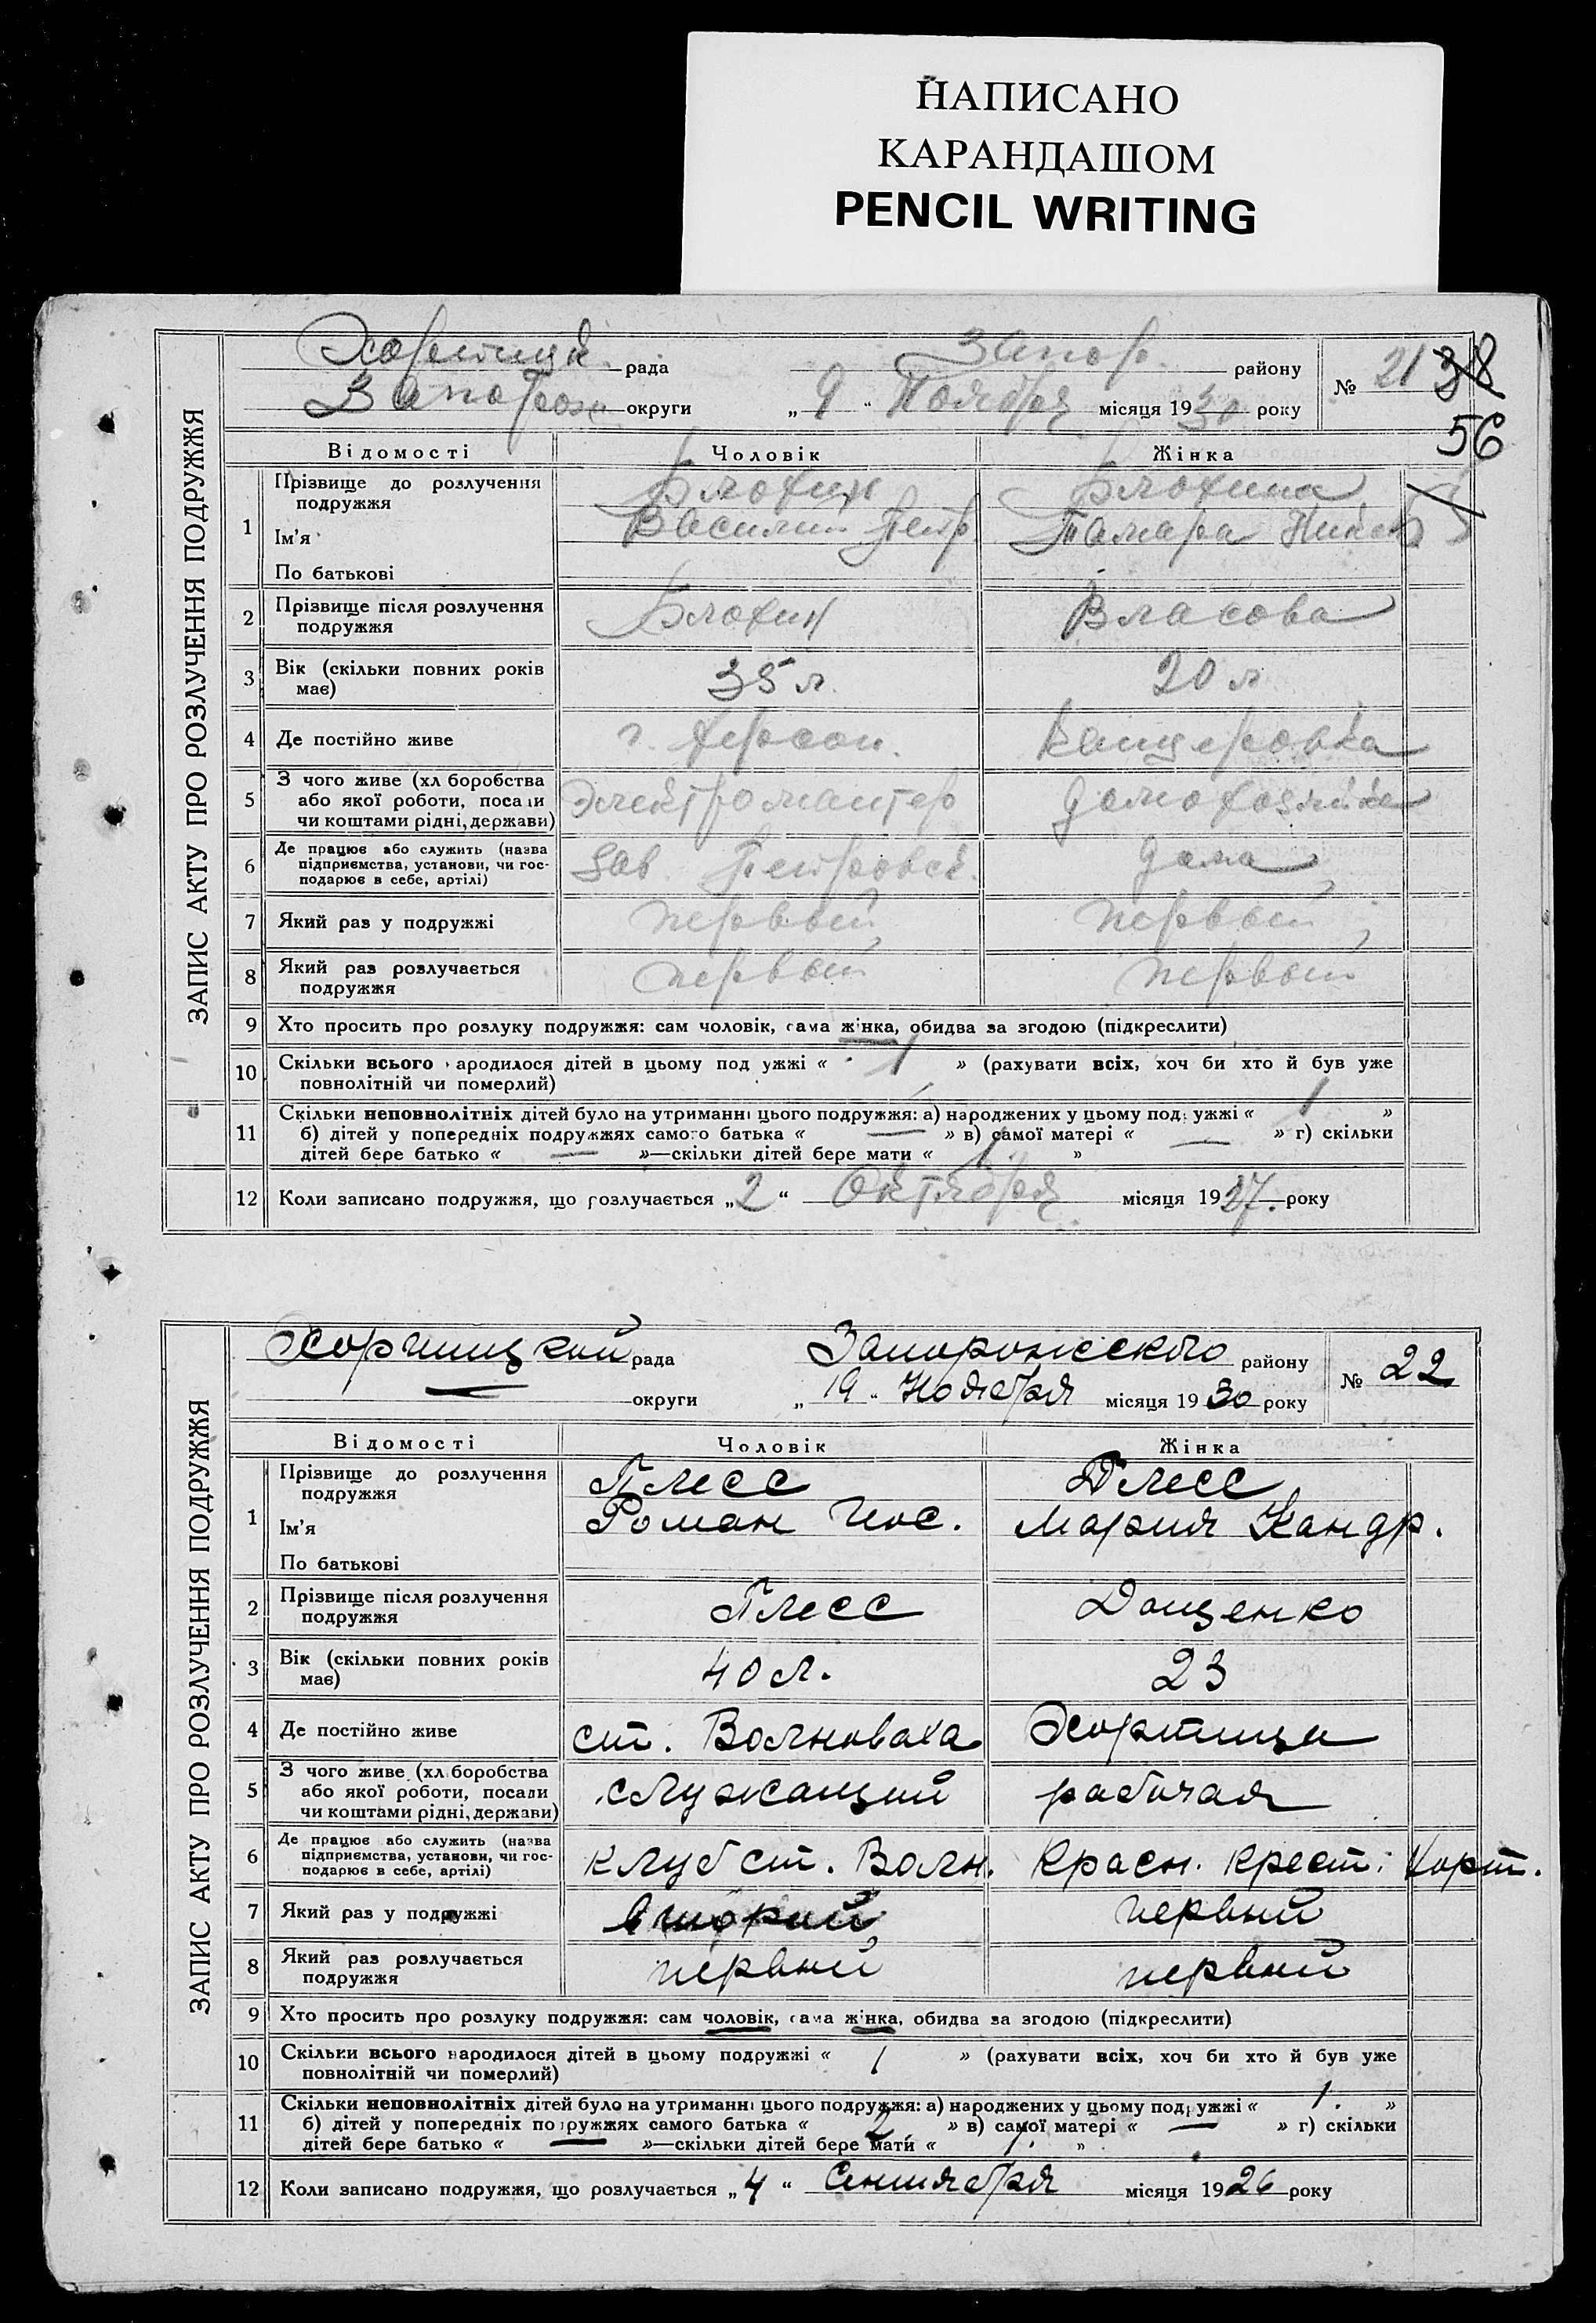 НАПИСАНО
КАРАНДАШОМ
PENCIL WRITING
ЗАПИС АКТУ ПРО РОЗЛУЧЕННЯ ПОДРУЖЖЯ
Хортицк. рада Запор. району № 21 38
Запорож округи „ 9 “ Ноября місяця 1930 року
56
Відомості Чоловік Жінка
1 Прізвище до розлучення подружжя Блохин Блохина
Ім'я Василий Петр Тамара Никол
По батькові
2 Прізвище після розлучення подружжя Блохин Власова
3 Вік (скільки повних років має) 35 л. 20 л
4 Де постійно живе г. Херсон. Канцеровка
5 З чого живе (хліборобства або якої роботи, посади чи коштами рідні, держави) Электромонтер домохозяйка
6 Де працює або служить (назва підприємства, установи, чи господарює в себе, артілі) Зав. Петровск. дома
7 Який раз у подружжі первый первый
8 Який раз розлучається подружжя первый первый
9 Хто просить про розлуку подружжя: сам чоловік, сама жінка, обидва за згодою (підкреслити)
10 Скільки всього народилося дітей в цьому подружжі « 1 » (рахувати всіх, хоч би хто й був уже
повнолітній чи померлий)
11 Скільки неповнолітніх дітей було на утриманні цього подружжя: а) народжених у цьому подружжі « 1 »
б) дітей у попередніх подружжях самого батька « — » в) самої матері « — » г) скільки
дітей бере батько « — »—скільки дітей бере мати « 1 »
12 Коли записано подружжя, що розлучається „ 2 “ Октября місяця 1927. року
ЗАПИС АКТУ ПРО РОЗЛУЧЕННЯ ПОДРУЖЖЯ
Хортицкой рада Запорожского району № 22
— округи „ 19 “ Ноября місяця 1930 року
Відомості Чоловік Жінка
1 Прізвище до розлучення подружжя Плесс Плесс
Ім'я Роман Иос. Мария Кандр.
По батькові
2 Прізвище після розлучення подружжя Плесс Дощенко
3 Вік (скільки повних років має) 40 л. 23
4 Де постійно живе ст. Волноваха Хортица
5 З чого живе (хліборобства або якої роботи, посади чи коштами рідні, держави) служащий рабочая
6 Де працює або служить (назва підприємства, установи, чи господарює в себе, артілі) клуб ст. Волн. Красн. Крест. Хорт.
7 Який раз у подружжі второй первый
8 Який раз розлучається подружжя первый первый
9 Хто просить про розлуку подружжя: сам чоловік, сама жінка, обидва за згодою (підкреслити)
10 Скільки всього народилося дітей в цьому подружжі « 1 » (рахувати всіх, хоч би хто й був уже
повнолітній чи померлий)
11 Скільки неповнолітніх дітей було на утриманні цього подружжя: а) народжених у цьому подружжі « 1. »
б) дітей у попередніх подружжях самого батька « 2 » в) самої матері « — » г) скільки
дітей бере батько « — »—скільки дітей бере мати « 1. »
12 Коли записано подружжя, що розлучається „ 4 “ Сентября місяця 1926 року